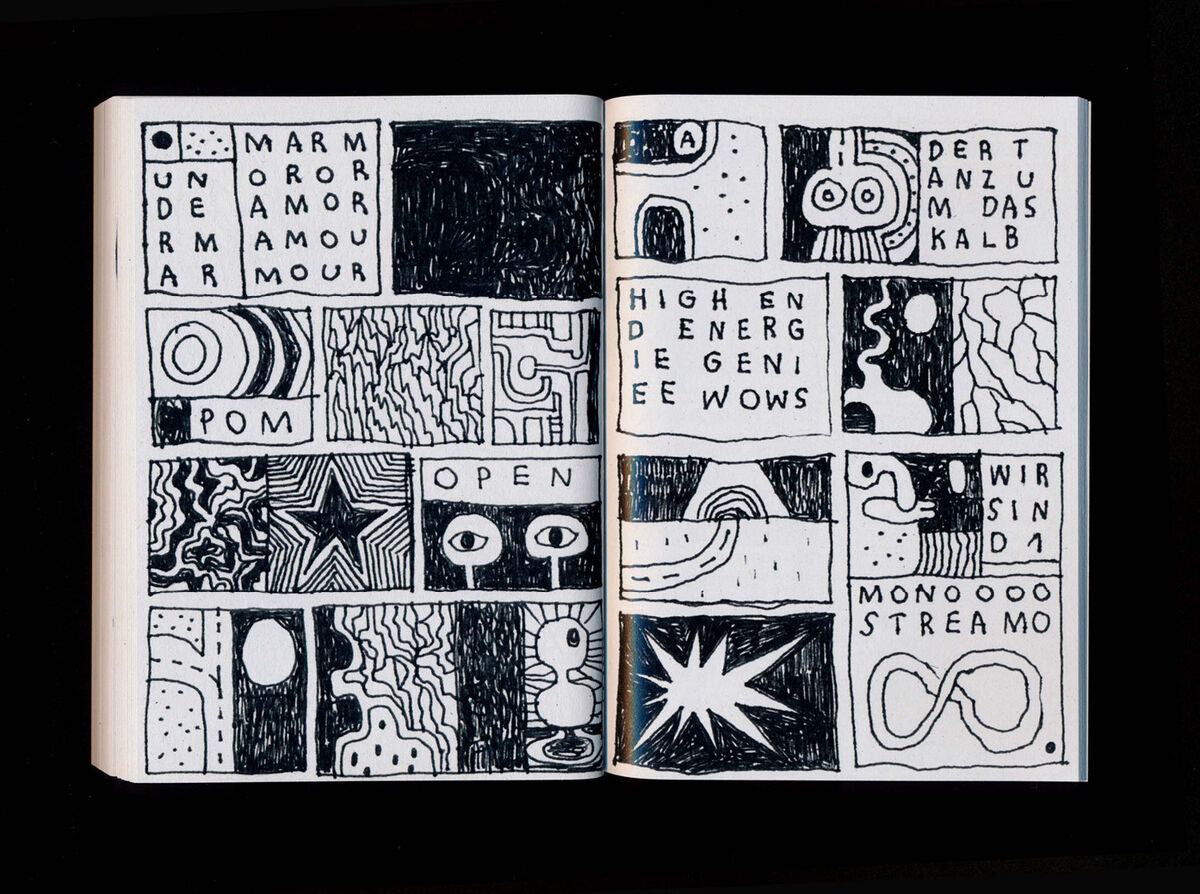 UN
DE
RM
AR
MARM
OROR
AMOR
AMOU
MOUR
POM
OPEN
A
DERT
ANZ U
M DAS
KALB
HIGH EN
D ENERG
IE GENI
EE WOWS
WIR
SIN
D1
MONOOOO
STREAMO